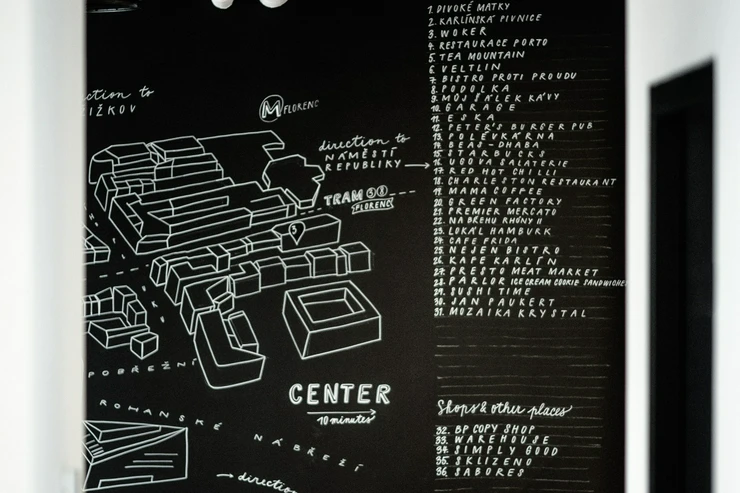 ction to
IŽKOV
M FLORENC
direction to
NÁMĚSTÍ
REPUBLIKY
TRAM 3 8
FLORENC
5
POBŘEŽNÍ
CENTER
10 minutes
ROMANSKÉ NÁBŘEŽÍ
direction
1. DIVOKÉ MATKY
2. KARLÍNSKÁ PIVNICE
3. WOKER
4. RESTAURACE PORTO
5. TEA MOUNTAIN
6. VELTLIN
7. BISTRO PROTI PROUDU
8. PODOLKA
9. MŮJ ŠÁLEK KÁVY
10. GARAGE
11. ESKA
12. PETER'S BURGER PUB
13. POLÉVKÁRNA
14. BEAS-DHABA
15. STARBUCKS
16. UGOVA SALATERIE
17. RED HOT CHILLI
18. CHARLESTON RESTAURANT
19. MAMA COFFEE
20. GREEN FACTORY
21. PREMIER MERCATO
22. NA BŘEHU RHÔNY II
23. LOKÁL HAMBURK
24. CAFE FRIDA
25. NEJEN BISTRO
26. KAFE KARLÍN
27. PRESTO MEAT MARKET
28. PARLOR ICE CREAM COOKIE SANDWICHES
29. SUSHI TIME
30. JAN PAUKERT
31. MOZAIKA KRYSTAL
Shops & other places
32. BP COPY SHOP
33. WAREHOUSE
34. SIMPLY GOOD
35. SKLIZENO
36. SABORES